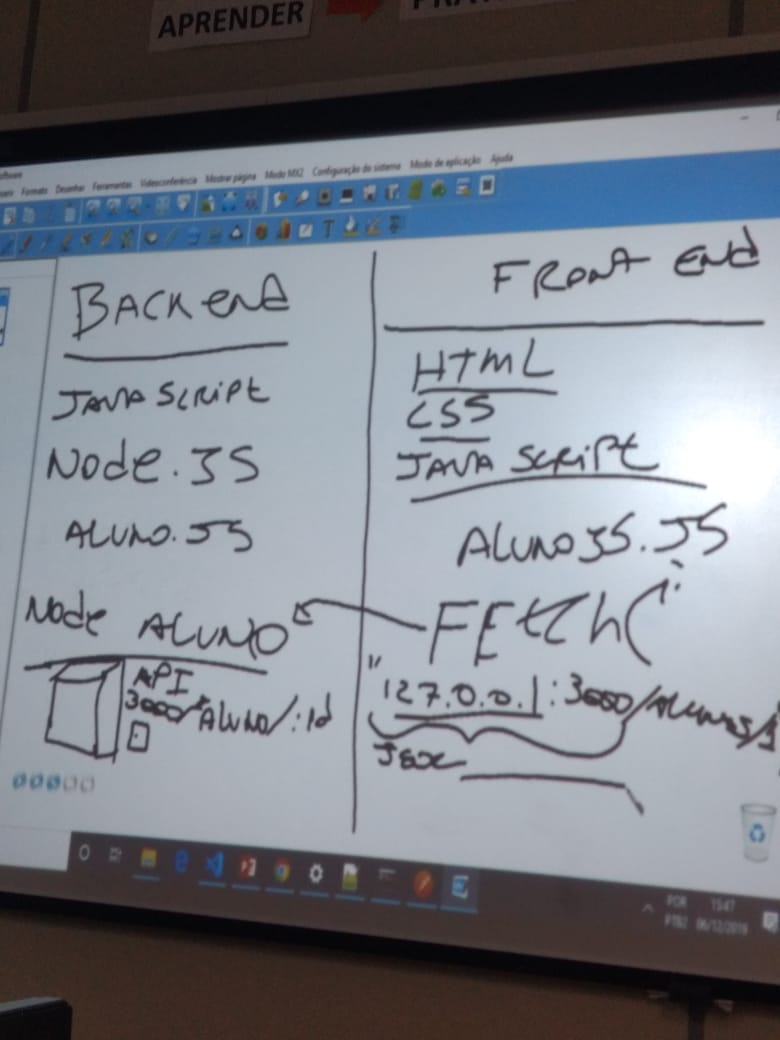 APRENDER
Formato Desenhar Ferramentas Videoconferência Mostrar página Modo MX2 Configuração do sistema Modo de aplicação Ajuda
BACK end
JAVA SCRIPT
Node.JS
ALUNO.JS
Node ALUNO
API
3000/ALUNO/:id
FRONT END
HTML
CSS
JAVA SCRIPT
ALUNOJS.JS
FETCH(
"127.0.0.1:3000/ALUNOS/1
POR 15:47
PTB2 06/12/2019